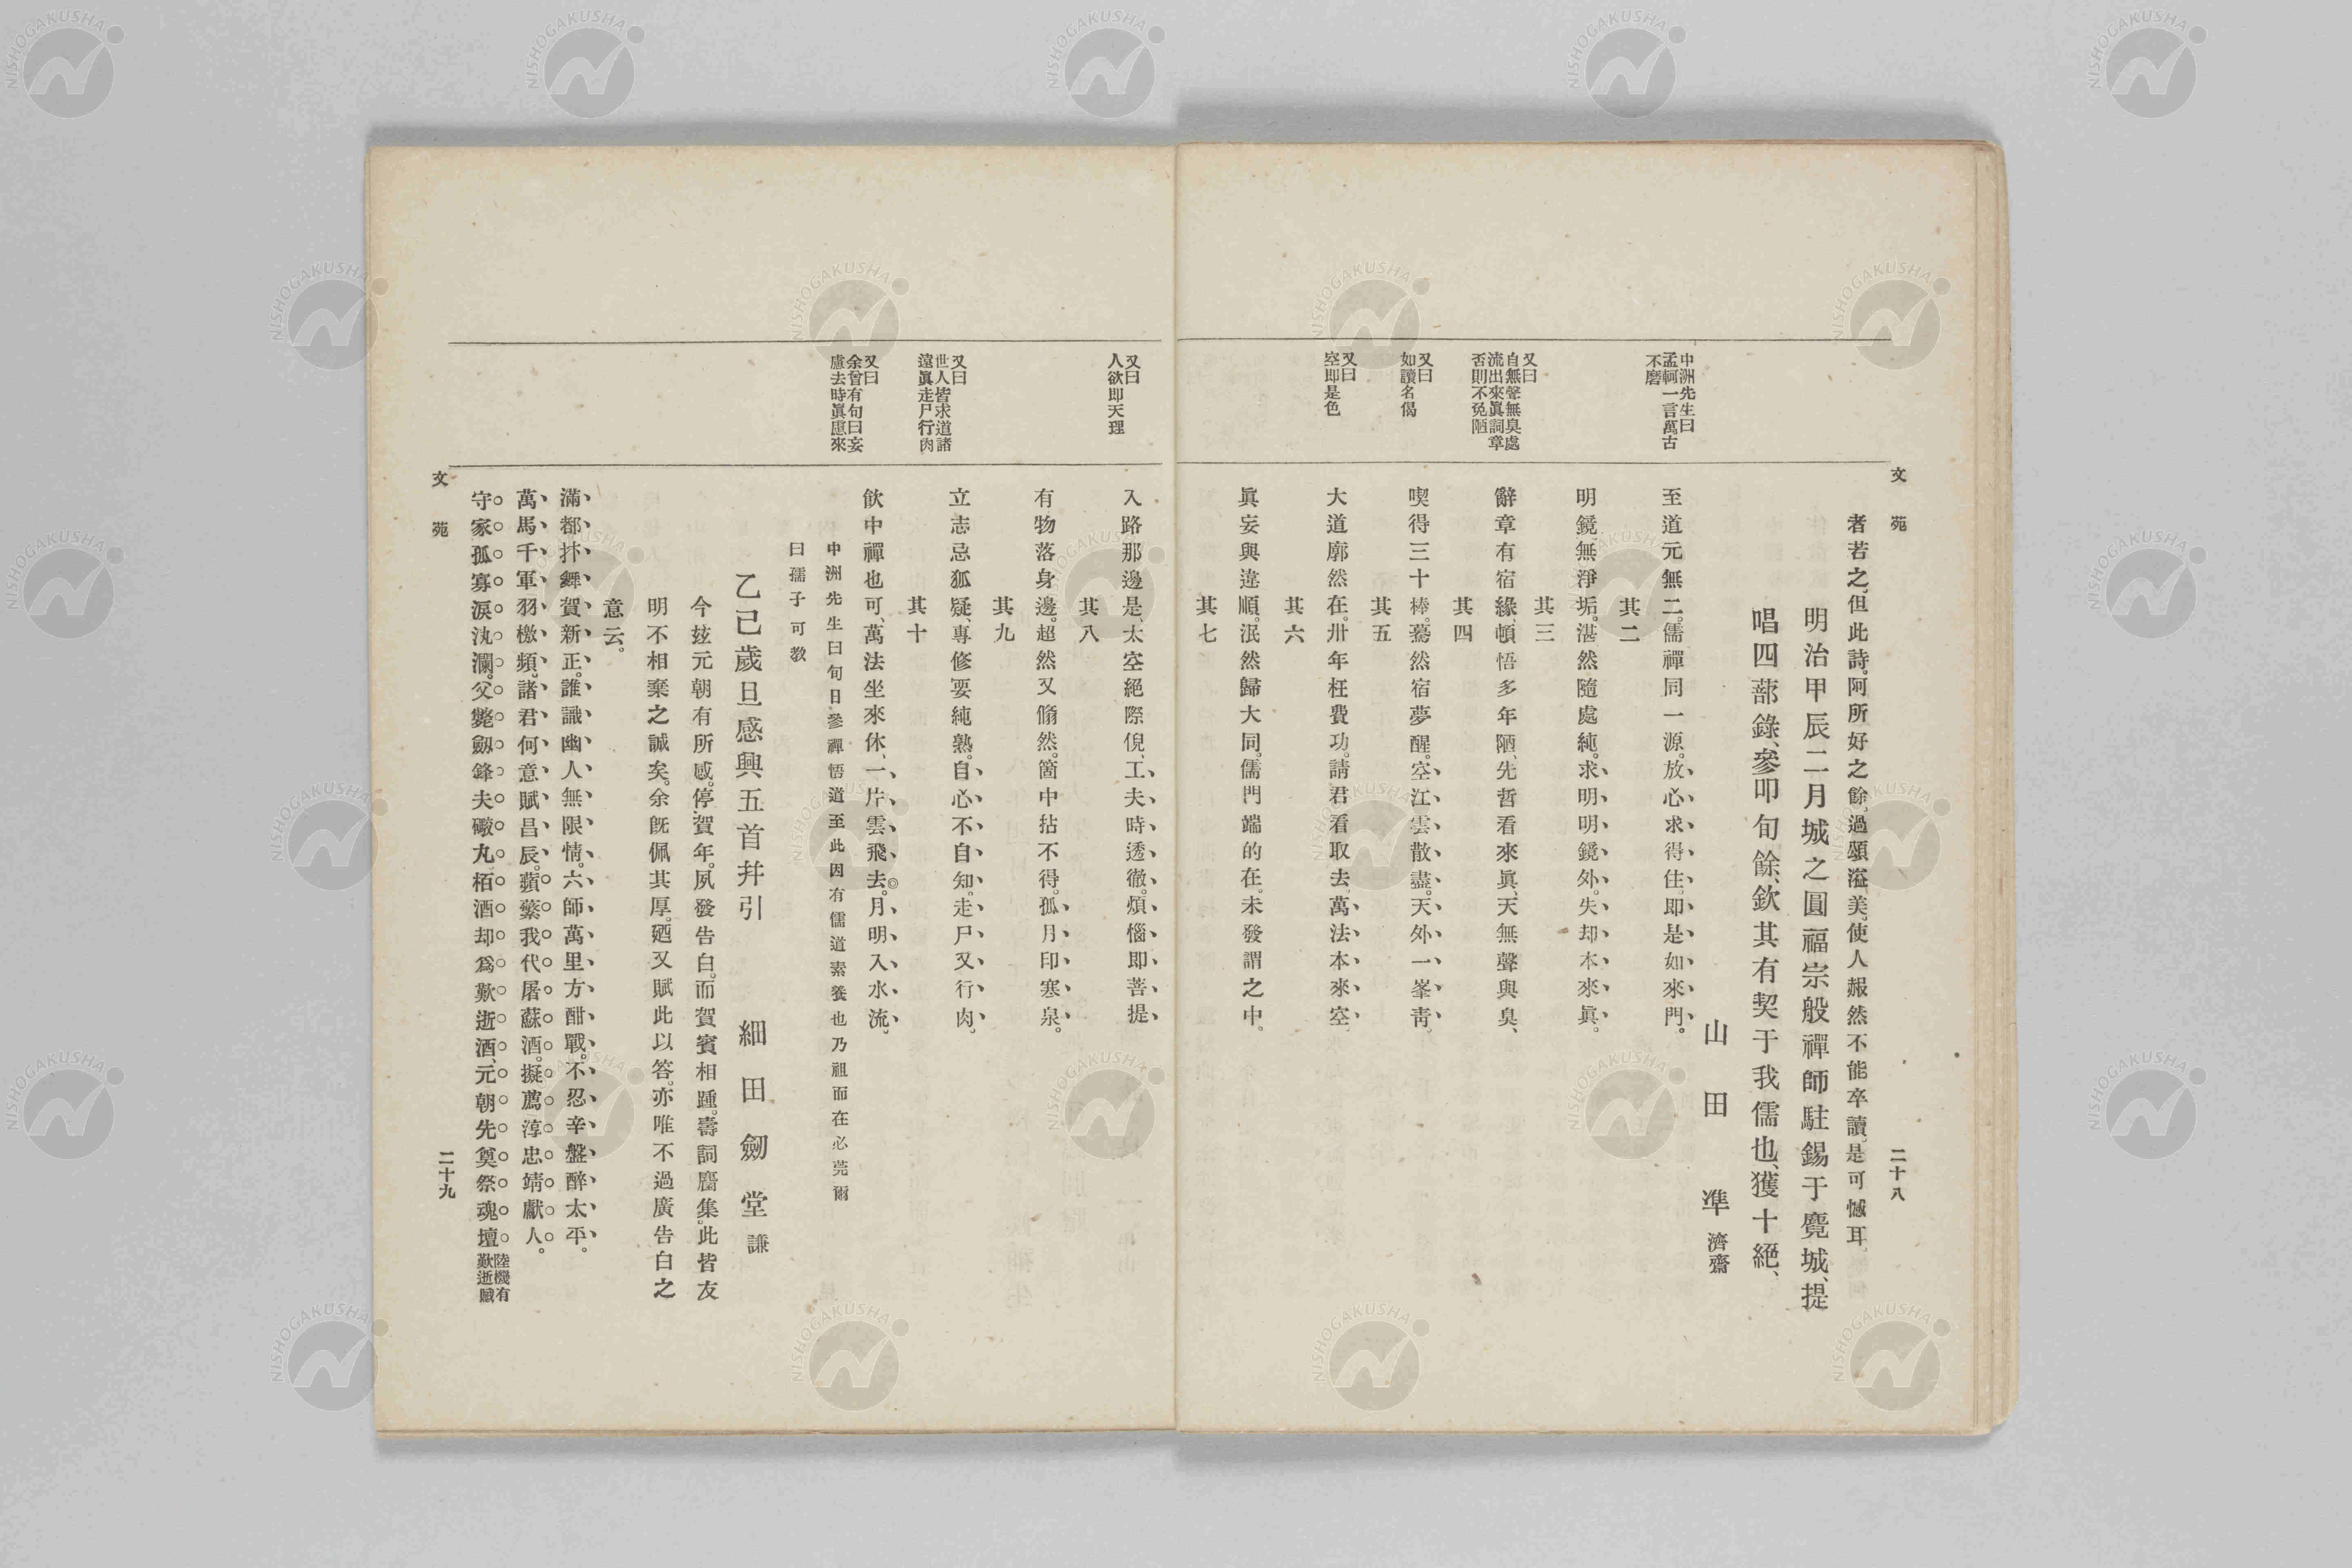 文苑
二十八
者若之、但此詩。阿所好之餘。過頌溢美。使人赧然不能卒讀。是可憾耳。
明治甲辰二月城之圓福宗般禪師駐錫于麑城、提
唱四蔀錄、參叩旬餘、欽其有契于我儒也、獲十絕、
山田準濟齋
中洲先生曰
孟軻一言萬古
不磨
至道元無二。儒禪同一源。放心求得住。即是如來門。
其二
明鏡無淨垢。湛然隨處純。求明明鏡外。失却本來眞。
其三
又曰
自無聲無臭處
流出來眞詞章
否則不免陋
辭章有宿緣、頓悟多年陋、先哲看來眞、天無聲與臭、
其四
又曰
如讀名偈
喫得三十棒。驀然宿夢醒。空江雲散盡。天外一峯靑。
其五
又曰
空即是色
大道廓然在。卅年枉費功。請君看取去。萬法本來空。
其六
眞妄與違順。泯然歸大同。儒門端的在。未發謂之中。
其七
又曰
人欲即天理
入路那邊是、太空絕際倪、工夫時透徹。煩惱即菩提、
其八
有物落身邊。超然又翛然。箇中拈不得。孤月印寒泉。
其九
又曰
世人皆求道諸
遠眞走尸行肉
立志忌狐疑、專修要純熟。自心不自知。走尸又行肉、
其十
又曰
余曾有句曰妄
慮去時眞慮來
飮中禪也可、萬法坐來休、一片雲飛去。月明入水流、
中洲先生曰旬日參禪悟道至此因有儒道素養也乃祖而在必莞爾
曰孺子可敎
乙己歲旦感興五首幷引
細田劒堂謙
今玆元朝有所感。停賀年。夙發告白。而賀賓相踵。壽詞麕集。此皆友
明不相棄之誠矣。余旣佩其厚。廼又賦此以答。亦唯不過廣告白之
意云。
滿都抃舞賀新正。誰識幽人無限情。六師萬里方酣戰。不忍辛盤醉太平。
萬馬千軍羽檄頻。諸君何意賦昌辰。蘋蘩我代屠蘇酒。擬薦淳忠靖獻人。
守家孤寡淚汍瀾。父斃劒鋒夫礮丸。栢酒却爲歎逝酒、元朝先奠祭魂壇。陸機有歎逝賦
文苑
二十九
NISHOGAKUSHA